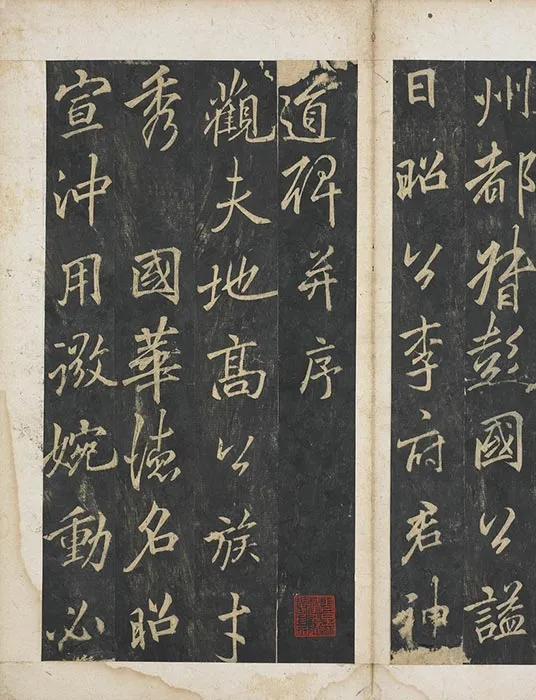 州都督彭國公謚
曰昭公李府君神
道碑并序
觀夫地高公族才
秀國華德名昭
宣沖用微婉動必